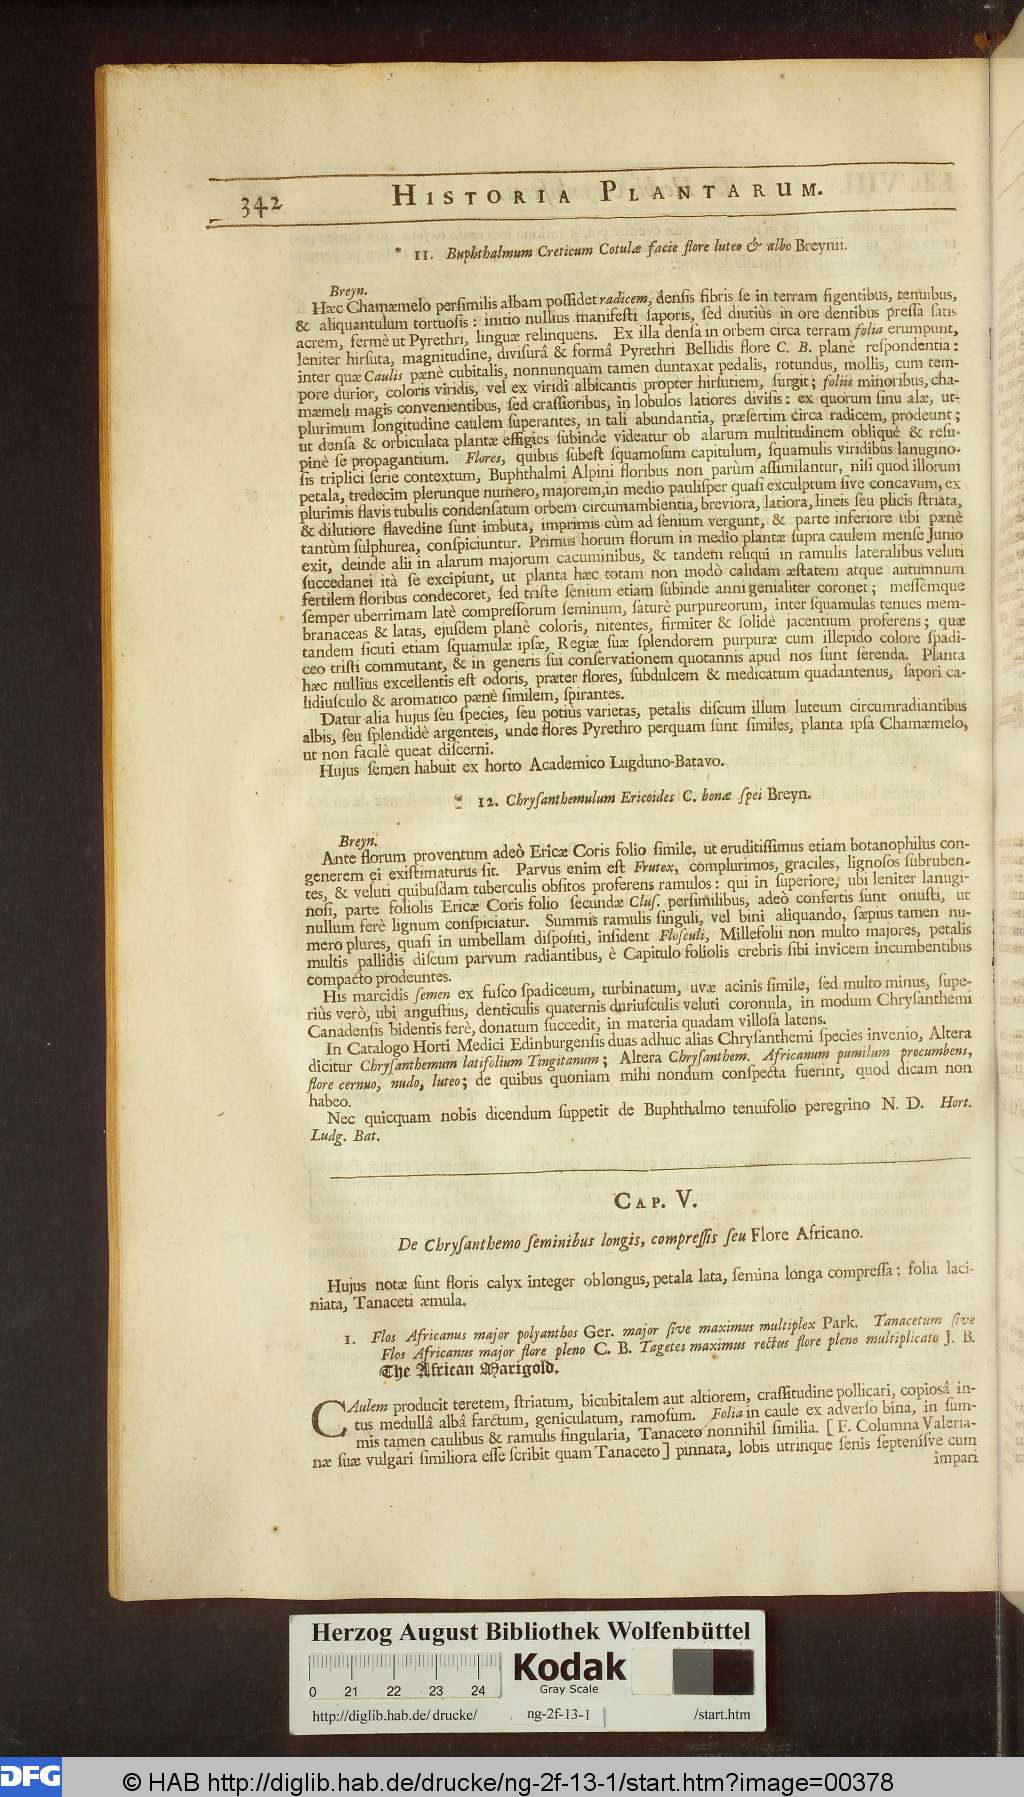 342
HISTORIA PLANTARUM.
* 11. Buphthalmum Creticum Cotulæ facie flore luteo & albo Breynii.
Breyn.
Hæc Chamæmelo perſimilis albam poſſidet radicem, denſis fibris ſe in terram figentibus, tenuibus,
& aliquantulum tortuoſis: initio nullius manifeſti ſaporis, ſed diutiùs in ore dentibus preſſa ſatis
acrem, fermè ut Pyrethri, linguæ relinquens. Ex illa denſa in orbem circa terram folia erumpunt,
leniter hirſuta, magnitudine, diviſurâ & formâ Pyrethri Bellidis flore C. B. planè reſpondentia:
inter quæ Caulis pænè cubitalis, nonnunquam tamen duntaxat pedalis, rotundus, mollis, cum tem-
pore durior, coloris viridis, vel ex viridi albicantis propter hirſutiem, ſurgit; foliis minoribus, cha-
mæmeli magis convenientibus, ſed craſſioribus, in lobulos latiores diviſis: ex quorum ſinu alæ, ut-
plurimum longitudine caulem ſuperantes, in tali abundantia, præſertim circa radicem, prodeunt;
ut denſa & orbiculata plantæ effigies ſubinde videatur ob alarum multitudinem obliquè & reſu-
pinè ſe propagantium. Flores, quibus ſubeſt ſquamoſum capitulum, ſquamulis viridibus lanugino-
ſis triplici ſerie contextum, Buphthalmi Alpini floribus non parùm aſſimilantur, niſi quod illorum
petala, tredecim plerunque numero, majorem, in medio pauliſper quaſi exculptum ſive concavum, ex
plurimis flavis tubulis condenſatum orbem circumambientia, breviora, latiora, lineis ſeu plicis ſtriata,
& dilutiore flavedine ſunt imbuta, imprimis cùm ad ſenium vergunt, & parte inferiore ubi pænè
tantùm ſulphurea, conſpiciuntur. Primus horum florum in medio plantæ ſupra caulem menſe Junio
exit, deinde alii in alarum majorum cacuminibus, & tandem reliqui in ramulis lateralibus veluti
ſuccedanei ità ſe excipiunt, ut planta hæc totam non modò calidam æſtatem atque autumnum
fertilem floribus condecoret, ſed triſte ſenium etiam ſubinde anni genialiter coronet; meſſemque
ſemper uberrimam latè compreſſorum ſeminum, ſaturè purpureorum, inter ſquamulas tenues mem-
branaceas & latas, ejuſdem planè coloris, nitentes, firmiter & ſolidè jacentium proferens; quæ
tandem ſicuti etiam ſquamulæ ipſæ, Regiæ ſuæ ſplendorem purpuræ cum illepido colore ſpadi-
ceo triſti commutant, & in generis ſui conſervationem quotannis apud nos ſunt ſerenda. Planta
hæc nullius excellentis eſt odoris, præter flores, ſubdulcem & medicatum quadantenus, ſapori ca-
lidiuſculo & aromatico pænè ſimilem, ſpirantes.
Datur alia hujus ſeu ſpecies, ſeu potiùs varietas, petalis diſcum illum luteum circumradiantibus
albis, ſeu ſplendidè argenteis, unde flores Pyrethro perquam ſunt ſimiles, planta ipſa Chamæmelo,
ut non facilè queat diſcerni.
Hujus ſemen habuit ex horto Academico Lugduno-Batavo.
* 12. Chryſanthemulum Ericoides C. bonæ ſpei Breyn.
Breyn.
Ante florum proventum adeò Ericæ Coris folio ſimile, ut eruditiſſimus etiam botanophilus con-
generem ei exiſtimaturus ſit. Parvus enim eſt Frutex, complurimos, graciles, lignoſos ſubruben-
tes, & veluti quibuſdam tuberculis obſitos proferens ramulos: qui in ſuperiore, ubi leniter lanugi-
noſi, parte foliolis Ericæ Coris folio ſecundæ Cluſ. perſimilibus, adeò confertis ſunt onuſti, ut
nullum ferè lignum conſpiciatur. Summis ramulis ſinguli, vel bini aliquando, ſæpius tamen nu-
mero plures, quaſi in umbellam diſpoſiti, inſident Floſculi, Millefolii non multo majores, petalis
multis pallidis diſcum parvum radiantibus, è Capitulo foliolis crebris ſibi invicem incumbentibus
compacto prodeuntes.
His marcidis ſemen ex fuſco ſpadiceum, turbinatum, uvæ acinis ſimile, ſed multo minus, ſupe-
riùs verò, ubi anguſtius, denticulis quaternis duriuſculis veluti coronula, in modum Chryſanthemi
Canadenſis bidentis ferè, donatum ſuccedit, in materia quadam villoſa latens.
In Catalogo Horti Medici Edinburgenſis duas adhuc alias Chryſanthemi ſpecies invenio, Altera
dicitur Chryſanthemum latifolium Tingitanum; Altera Chryſanthem. Africanum pumilum procumbens,
flore cernuo, nudo, luteo; de quibus quoniam mihi nondum conſpecta fuerint, quod dicam non
habeo.
Nec quicquam nobis dicendum ſuppetit de Buphthalmo tenuifolio peregrino N. D. Hort.
Ludg. Bat.
CAP. V.
De Chryſanthemo ſeminibus longis, compreſſis ſeu Flore Africano.
Hujus notæ ſunt floris calyx integer oblongus, petala lata, ſemina longa compreſſa: folia laci-
niata, Tanaceti æmula.
1. Flos Africanus major polyanthos Ger. major ſive maximus multiplex Park. Tanacetum ſive
Flos Africanus major flore pleno C. B. Tagetes maximus rectus flore pleno multiplicato J. B.
The African Marigold.
CAulem producit teretem, ſtriatum, bicubitalem aut altiorem, craſſitudine pollicari, copiosâ in-
tus medullâ albâ farctum, geniculatum, ramoſum. Folia in caule ex adverſo bina, in ſum-
mis tamen caulibus & ramulis ſingularia, Tanaceto nonnihil ſimilia. [F. Columna Valeria-
næ ſuæ vulgari ſimiliora eſſe ſcribit quam Tanaceto] pinnata, lobis utrinque ſenis ſepteniſve cum
impari
Herzog August Bibliothek Wolfenbüttel
Kodak
Gray Scale
0 21 22 23 24
http://diglib.hab.de/drucke/ ng-2f-13-1 /start.htm
DFG © HAB http://diglib.hab.de/drucke/ng-2f-13-1/start.htm?image=00378